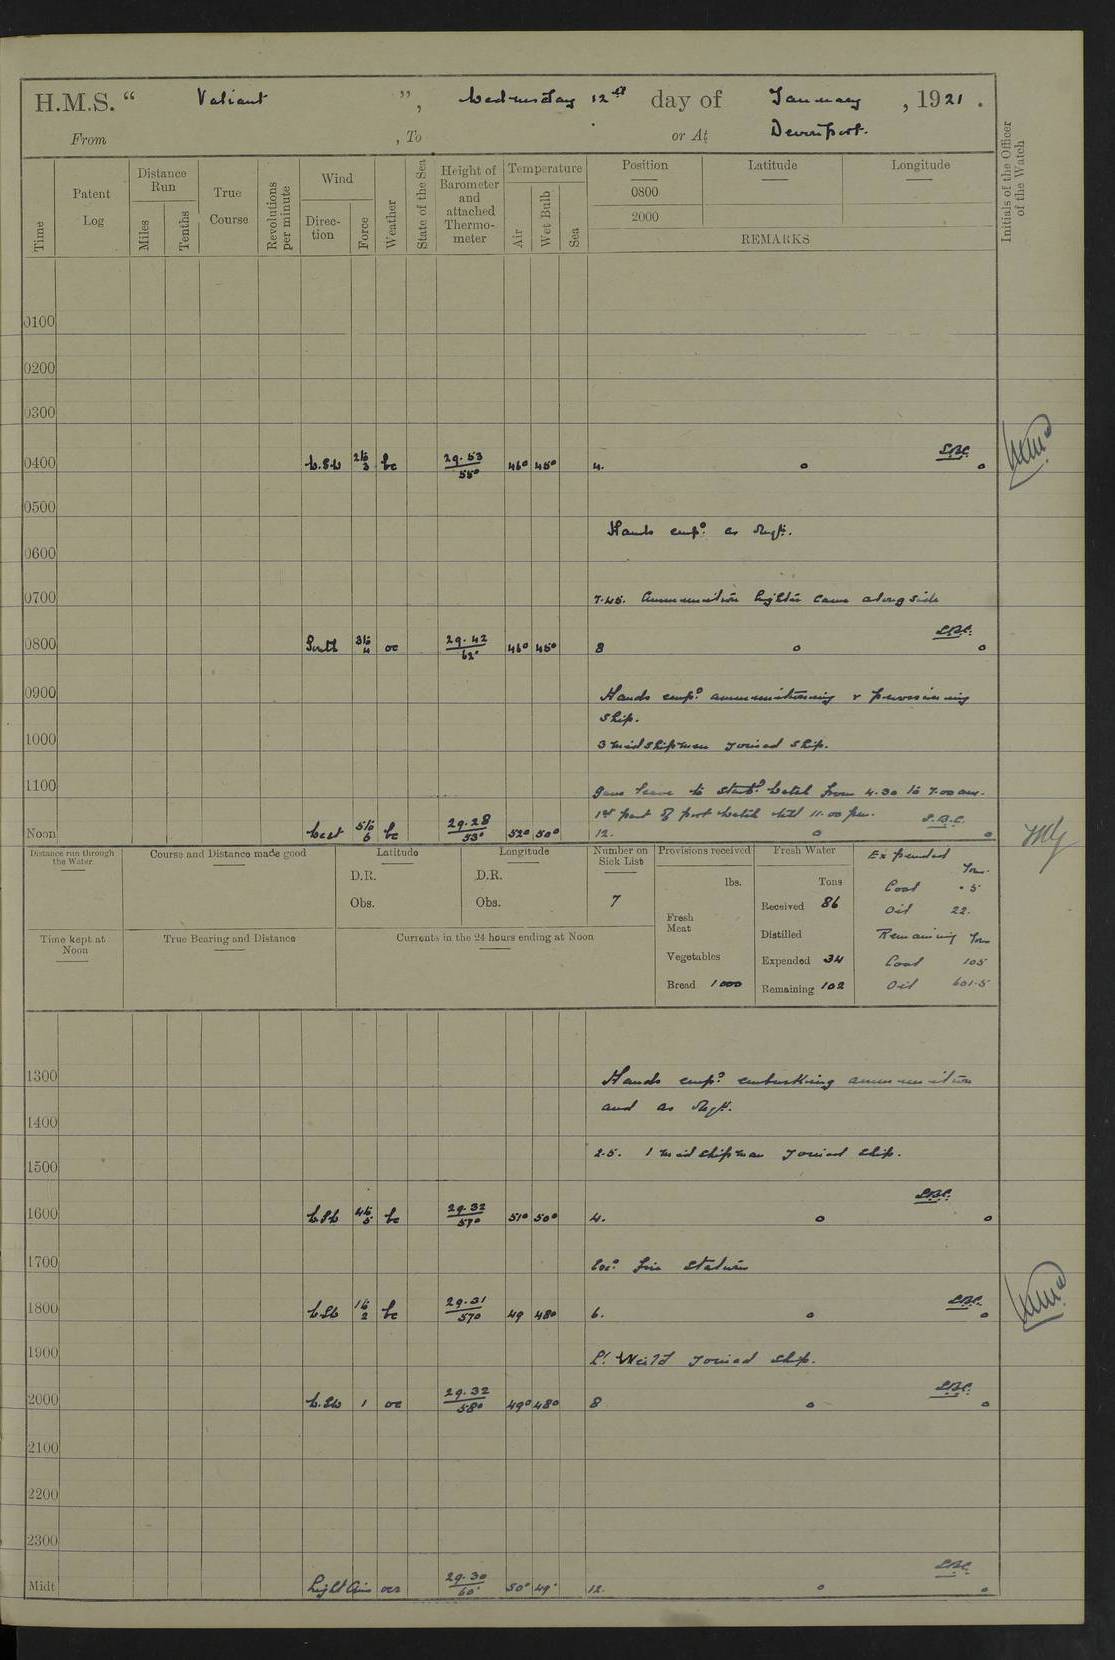 H.M.S. “ Valiant ”, Wednesday 12th day of January , 1921 .
From , To or At Devonport.
Time Patent Log Distance Run Miles Tenths True Course Revolutions per minute Wind Direc-tion Force Weather State of the Sea Height of Barometer and attached Thermo-meter Temperature Air Wet Bulb Sea Position Latitude Longitude Initials of the Officer of the Watch
0800
2000
REMARKS
0100
0200
0300
0400 W.S.W 2 to 3 bc 29.53 55° 46° 45° 4.
0500
Hands emp? as Reqt.
0600
0700 7.45. Ammunition lighter came alongside
0800 South 3 to 4 oc 29.42 62° 46° 45° 8
0900 Hands emp? ammunitioning & provisioning
ship.
1000 3 midshipmen joined ship.
1100 Gave leave to Starb? Watch from 4.30 to 7.00 am.
1st part of port watch till 11.00 pm.
Noon West 5 to 6 bc 29.28 53° 52° 50° 12.
Distance run through the Water Course and Distance made good Latitude Longitude Number on Sick List Provisions received Fresh Water Expended
D.R. D.R. lbs. Tons Tons
Obs. Obs. 7 Received 86 Coal .5
Fresh Meat Oil 22.
Time kept at Noon True Bearing and Distance Currents in the 24 hours ending at Noon Distilled Remaining Tons
Vegetables Expended 34 Coal 105
Bread 1000 Remaining 102 Oil 601.5
1300 Hands emp? embarking ammunition
and as Reqt.
1400
1500 2.5. 1 midshipman joined ship.
1600 W.S.W 4 to 5 bc 29.32 57° 51° 50° 4.
1700 Exc? fire stations
1800 W.S.W 1 to 2 bc 29.31 57° 49 48° 6.
1900 Lt Weild joined ship.
2000 W.S.W 1 oc 29.32 58° 49° 48° 8
2100
2200
2300
Midt Light Airs ocr 29.30 60° 50° 49° 12.